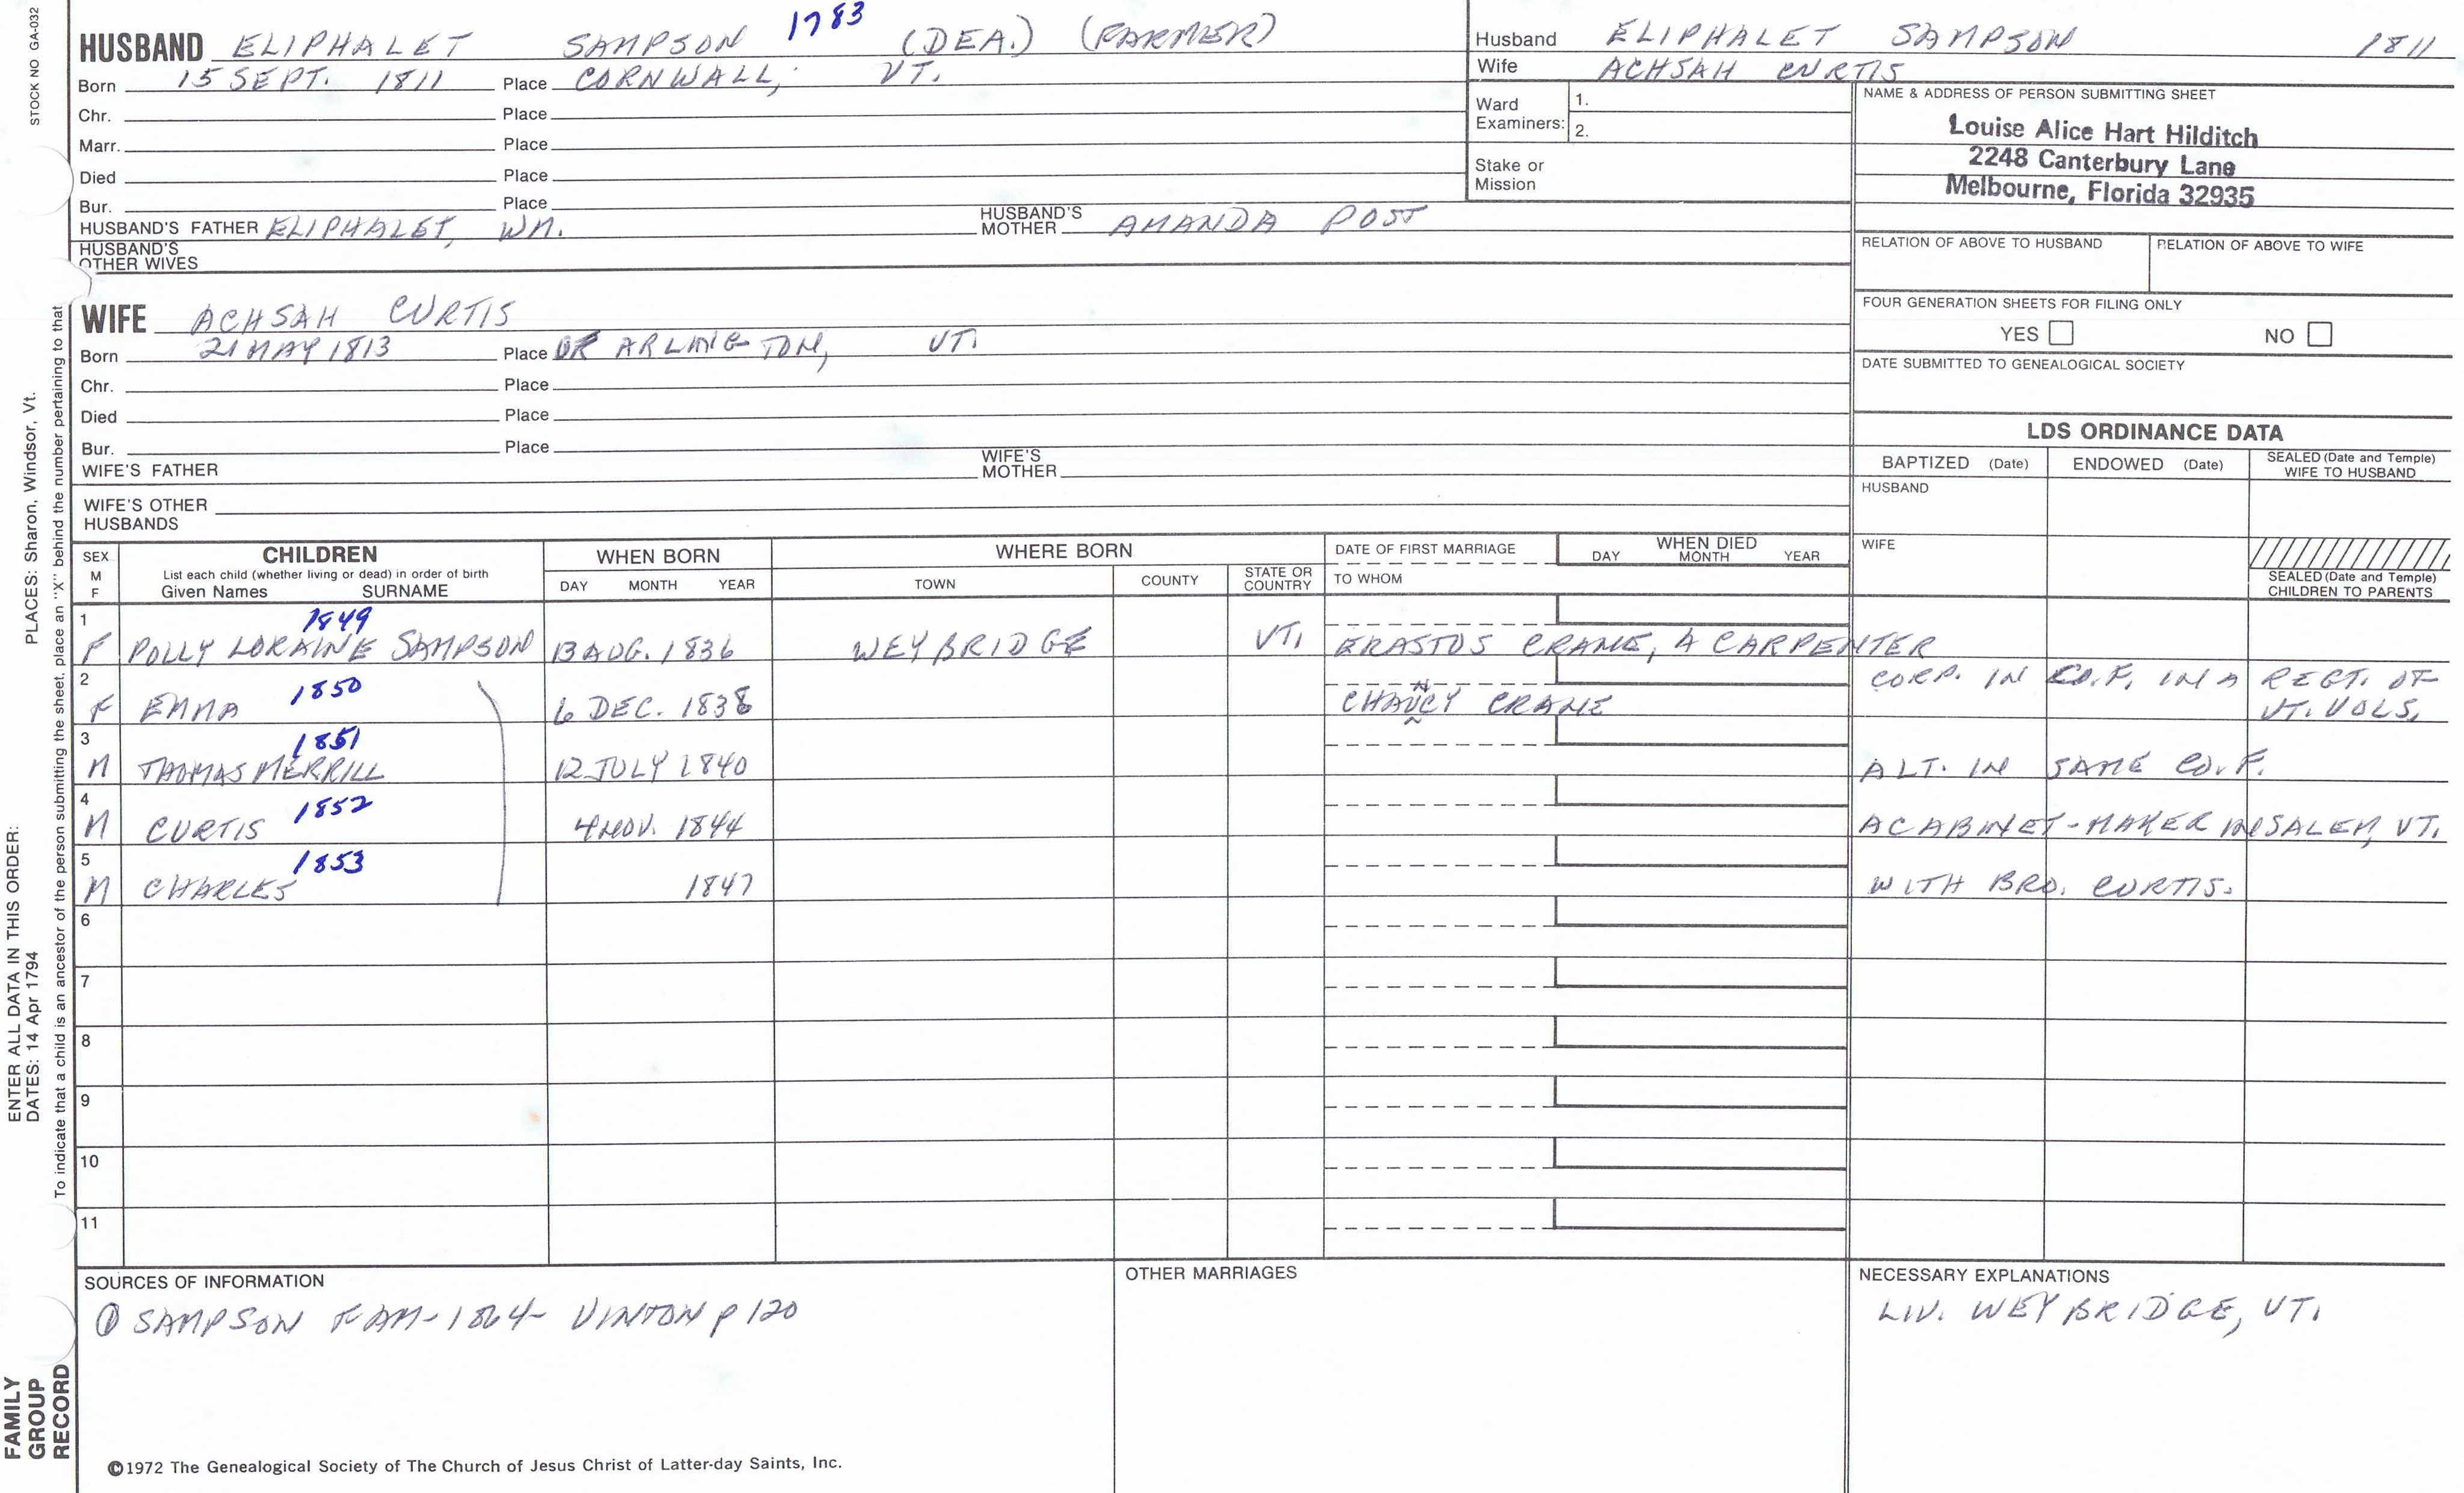 STOCK NO GA-032
HUSBAND ELIPHALET SAMPSON 1783 (DEA.) (FARMER)
Born 15 SEPT. 1811 Place CORNWALL, VT.
Chr. Place
Marr. Place
Died Place
Bur. Place
HUSBAND'S FATHER ELIPHALET, WM. HUSBAND'S MOTHER AMANDA POST
HUSBAND'S OTHER WIVES
Husband ELIPHALET SAMPSON 1811
Wife ACHSAH CURTIS
Ward Examiners: 1.
2.
Stake or Mission
NAME & ADDRESS OF PERSON SUBMITTING SHEET
Louise Alice Hart Hilditch
2248 Canterbury Lane
Melbourne, Florida 32935
RELATION OF ABOVE TO HUSBAND RELATION OF ABOVE TO WIFE
FOUR GENERATION SHEETS FOR FILING ONLY
YES NO
DATE SUBMITTED TO GENEALOGICAL SOCIETY
WIFE ACHSAH CURTIS
Born 21 MAY 1813 Place OF ARLINGTON, VT.
Chr. Place
Died Place
Bur. Place
WIFE'S FATHER WIFE'S MOTHER
WIFE'S OTHER HUSBANDS
LDS ORDINANCE DATA
BAPTIZED (Date) ENDOWED (Date) SEALED (Date and Temple) WIFE TO HUSBAND
HUSBAND
WIFE
SEALED (Date and Temple) CHILDREN TO PARENTS
SEX M F CHILDREN List each child (whether living or dead) in order of birth Given Names SURNAME
WHEN BORN DAY MONTH YEAR
WHERE BORN TOWN COUNTY STATE OR COUNTRY
DATE OF FIRST MARRIAGE TO WHOM
WHEN DIED DAY MONTH YEAR
1 1849
F POLLY LORAINE SAMPSON 13 AUG. 1836 WEYBRIDGE VT. ERASTUS CRANE, A CARPENTER
2 1850 CORP. IN CO. F. IN A REGT. OF
F EMMA 6 DEC. 1838 CHANCY CRANE VT. VOLS.
3 1851
M THOMAS MERRILL 12 JULY 1840 ALT. IN SAME CO. F.
4 1852
M CURTIS 4 NOV. 1844 A CABINET-MAKER IN SALEM, VT.
5 1853
M CHARLES 1847 WITH BRO. CURTIS.
6
7
8
9
10
11
SOURCES OF INFORMATION
① SAMPSON FAM-1864- VINTON p 120
OTHER MARRIAGES
NECESSARY EXPLANATIONS
LIV. WEYBRIDGE, VT.
©1972 The Genealogical Society of The Church of Jesus Christ of Latter-day Saints, Inc.
ENTER ALL DATA IN THIS ORDER:
DATES: 14 Apr 1794
PLACES: Sharon, Windsor, Vt.
To indicate that a child is an ancestor of the person submitting the sheet, place an "X" behind the number pertaining to that
FAMILY
GROUP
RECORD